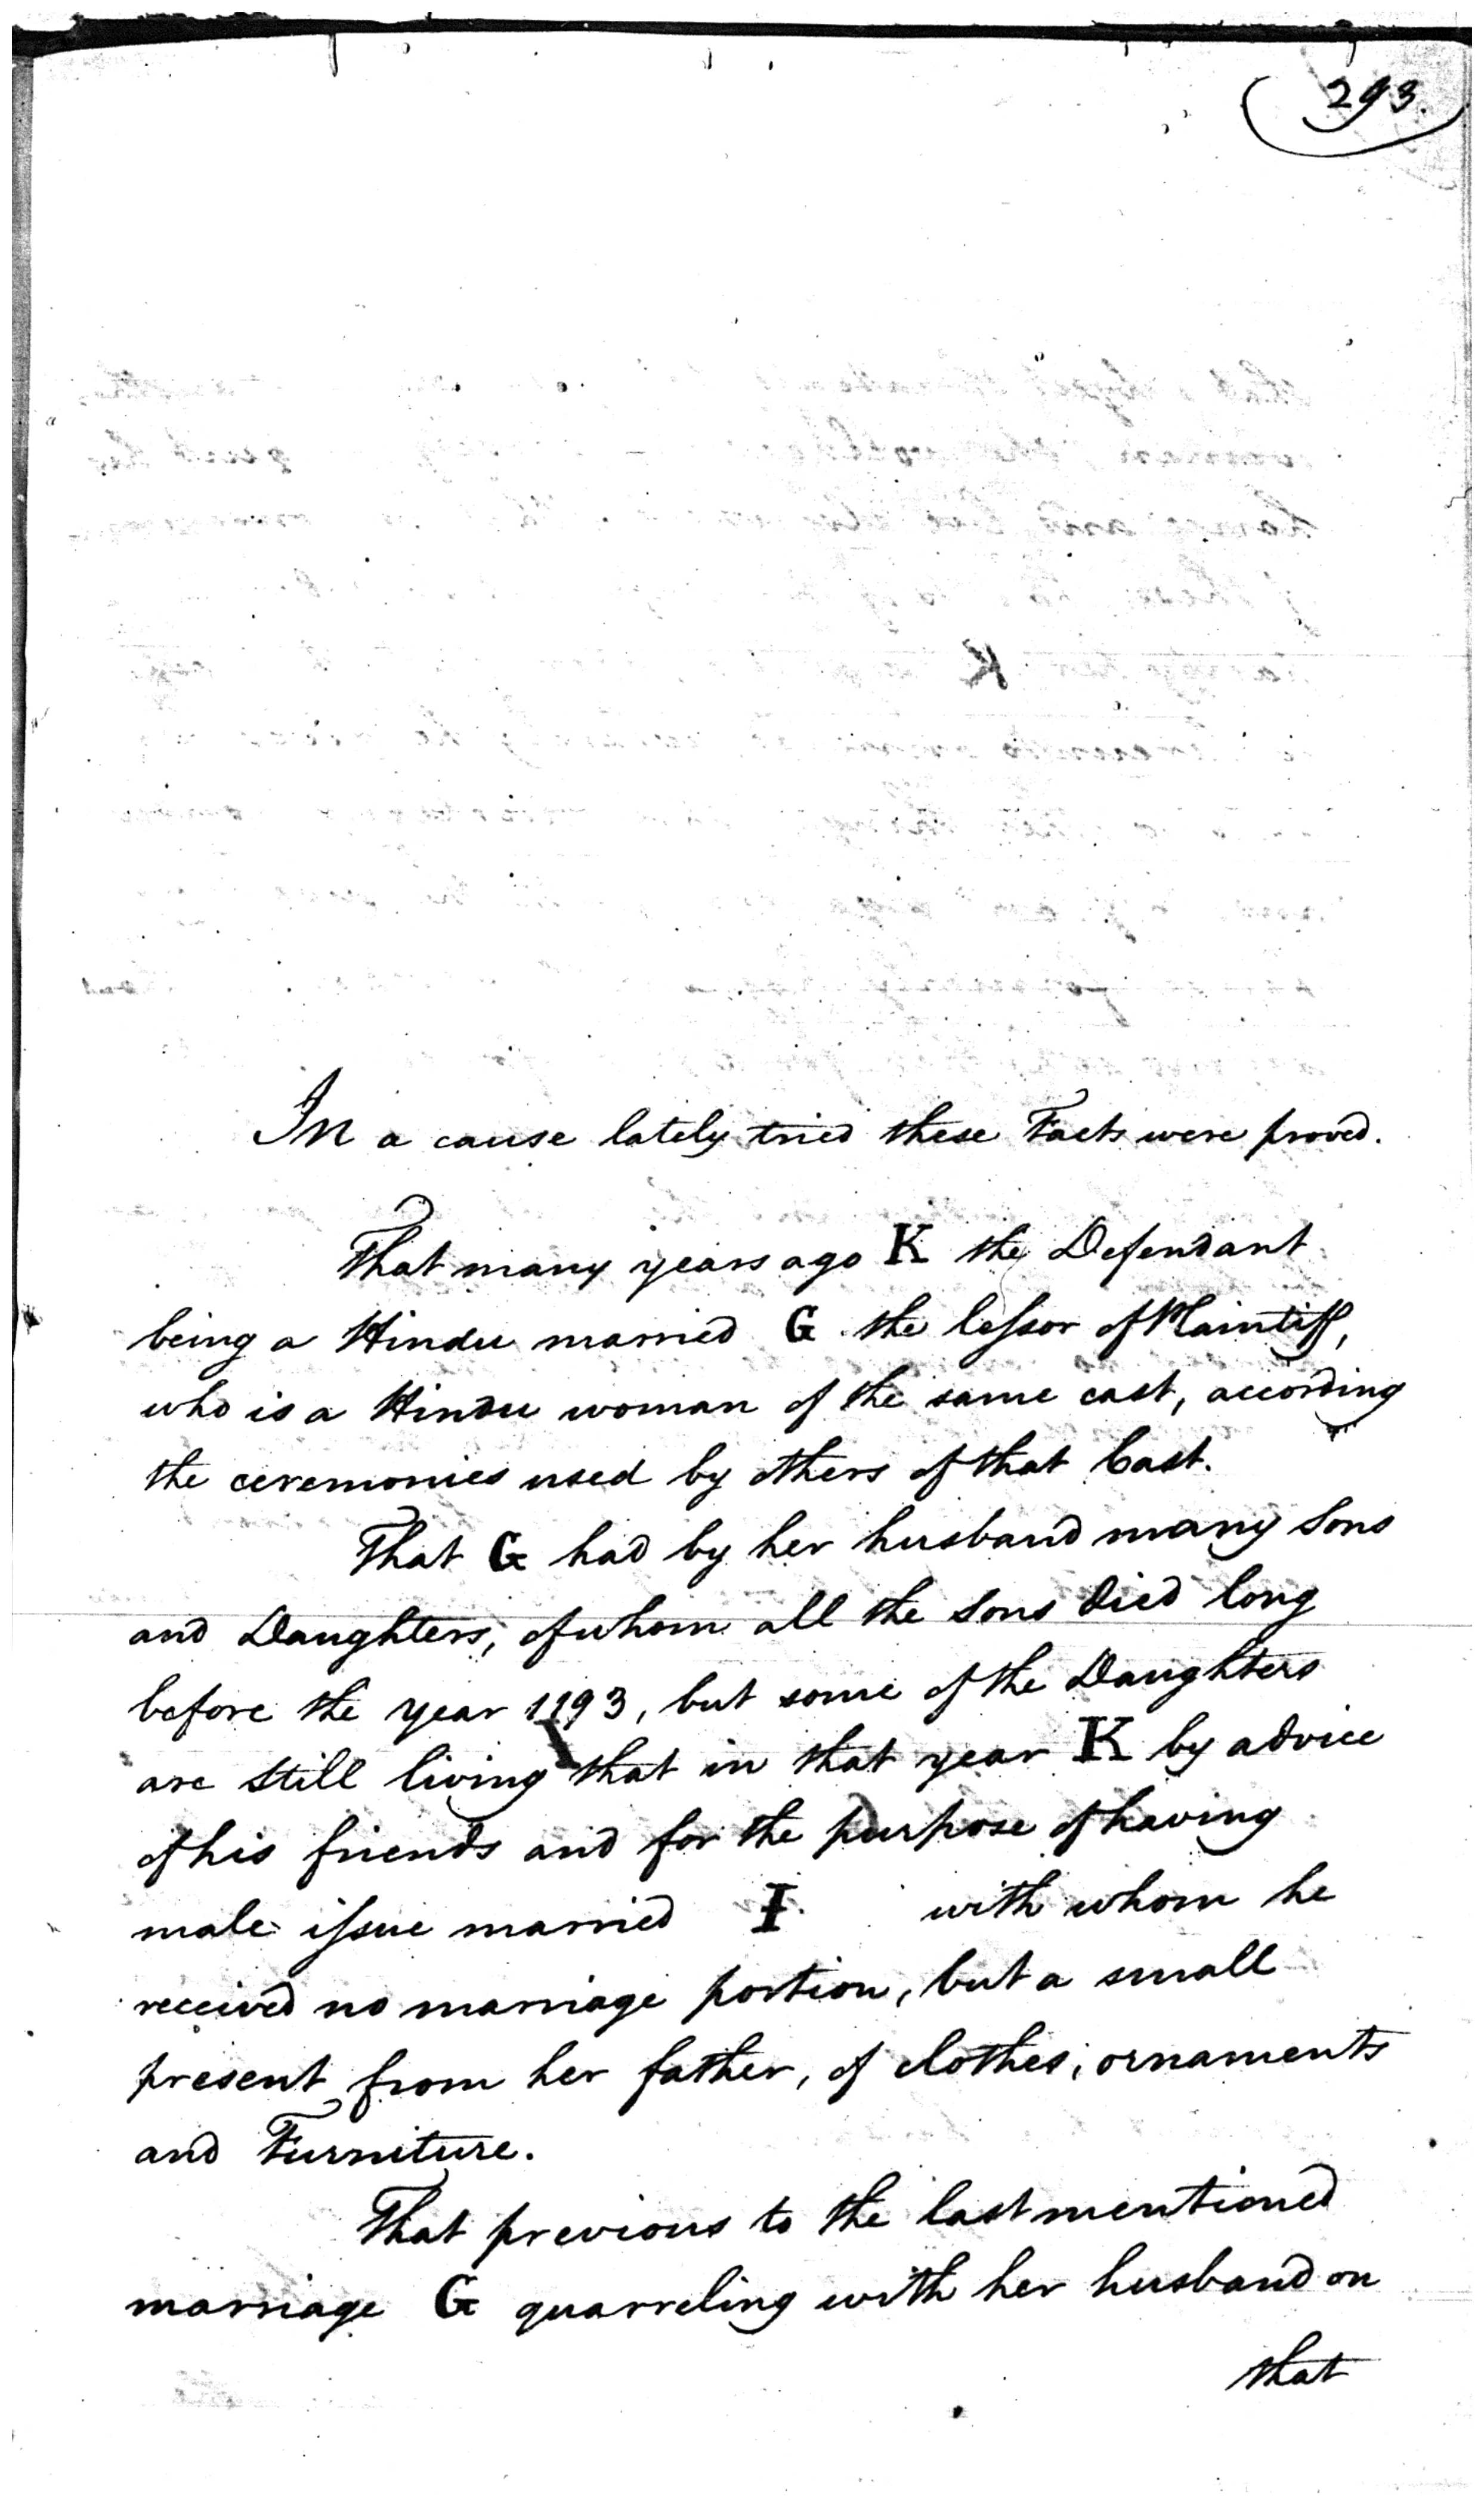 293.
In a cause lately tried these Facts were proved.
That many years ago K the Defendant
being a Hindu married G the lessor of Plaintiff,
who is a Hindu woman of the same cast, according
the ceremonies used by others of that Cast.
That G had by her husband many Sons
and Daughters, of whom all the Sons died long
before the year 1193, but some of the Daughters
are still living that in that year K by advice
of his friends and for the purpose of having
male issue married I with whom he
received no marriage portion, but a small
present from her father, of clothes, ornaments
and Furniture.
That previous to the last mentioned
marriage G quarreling with her husband on
that